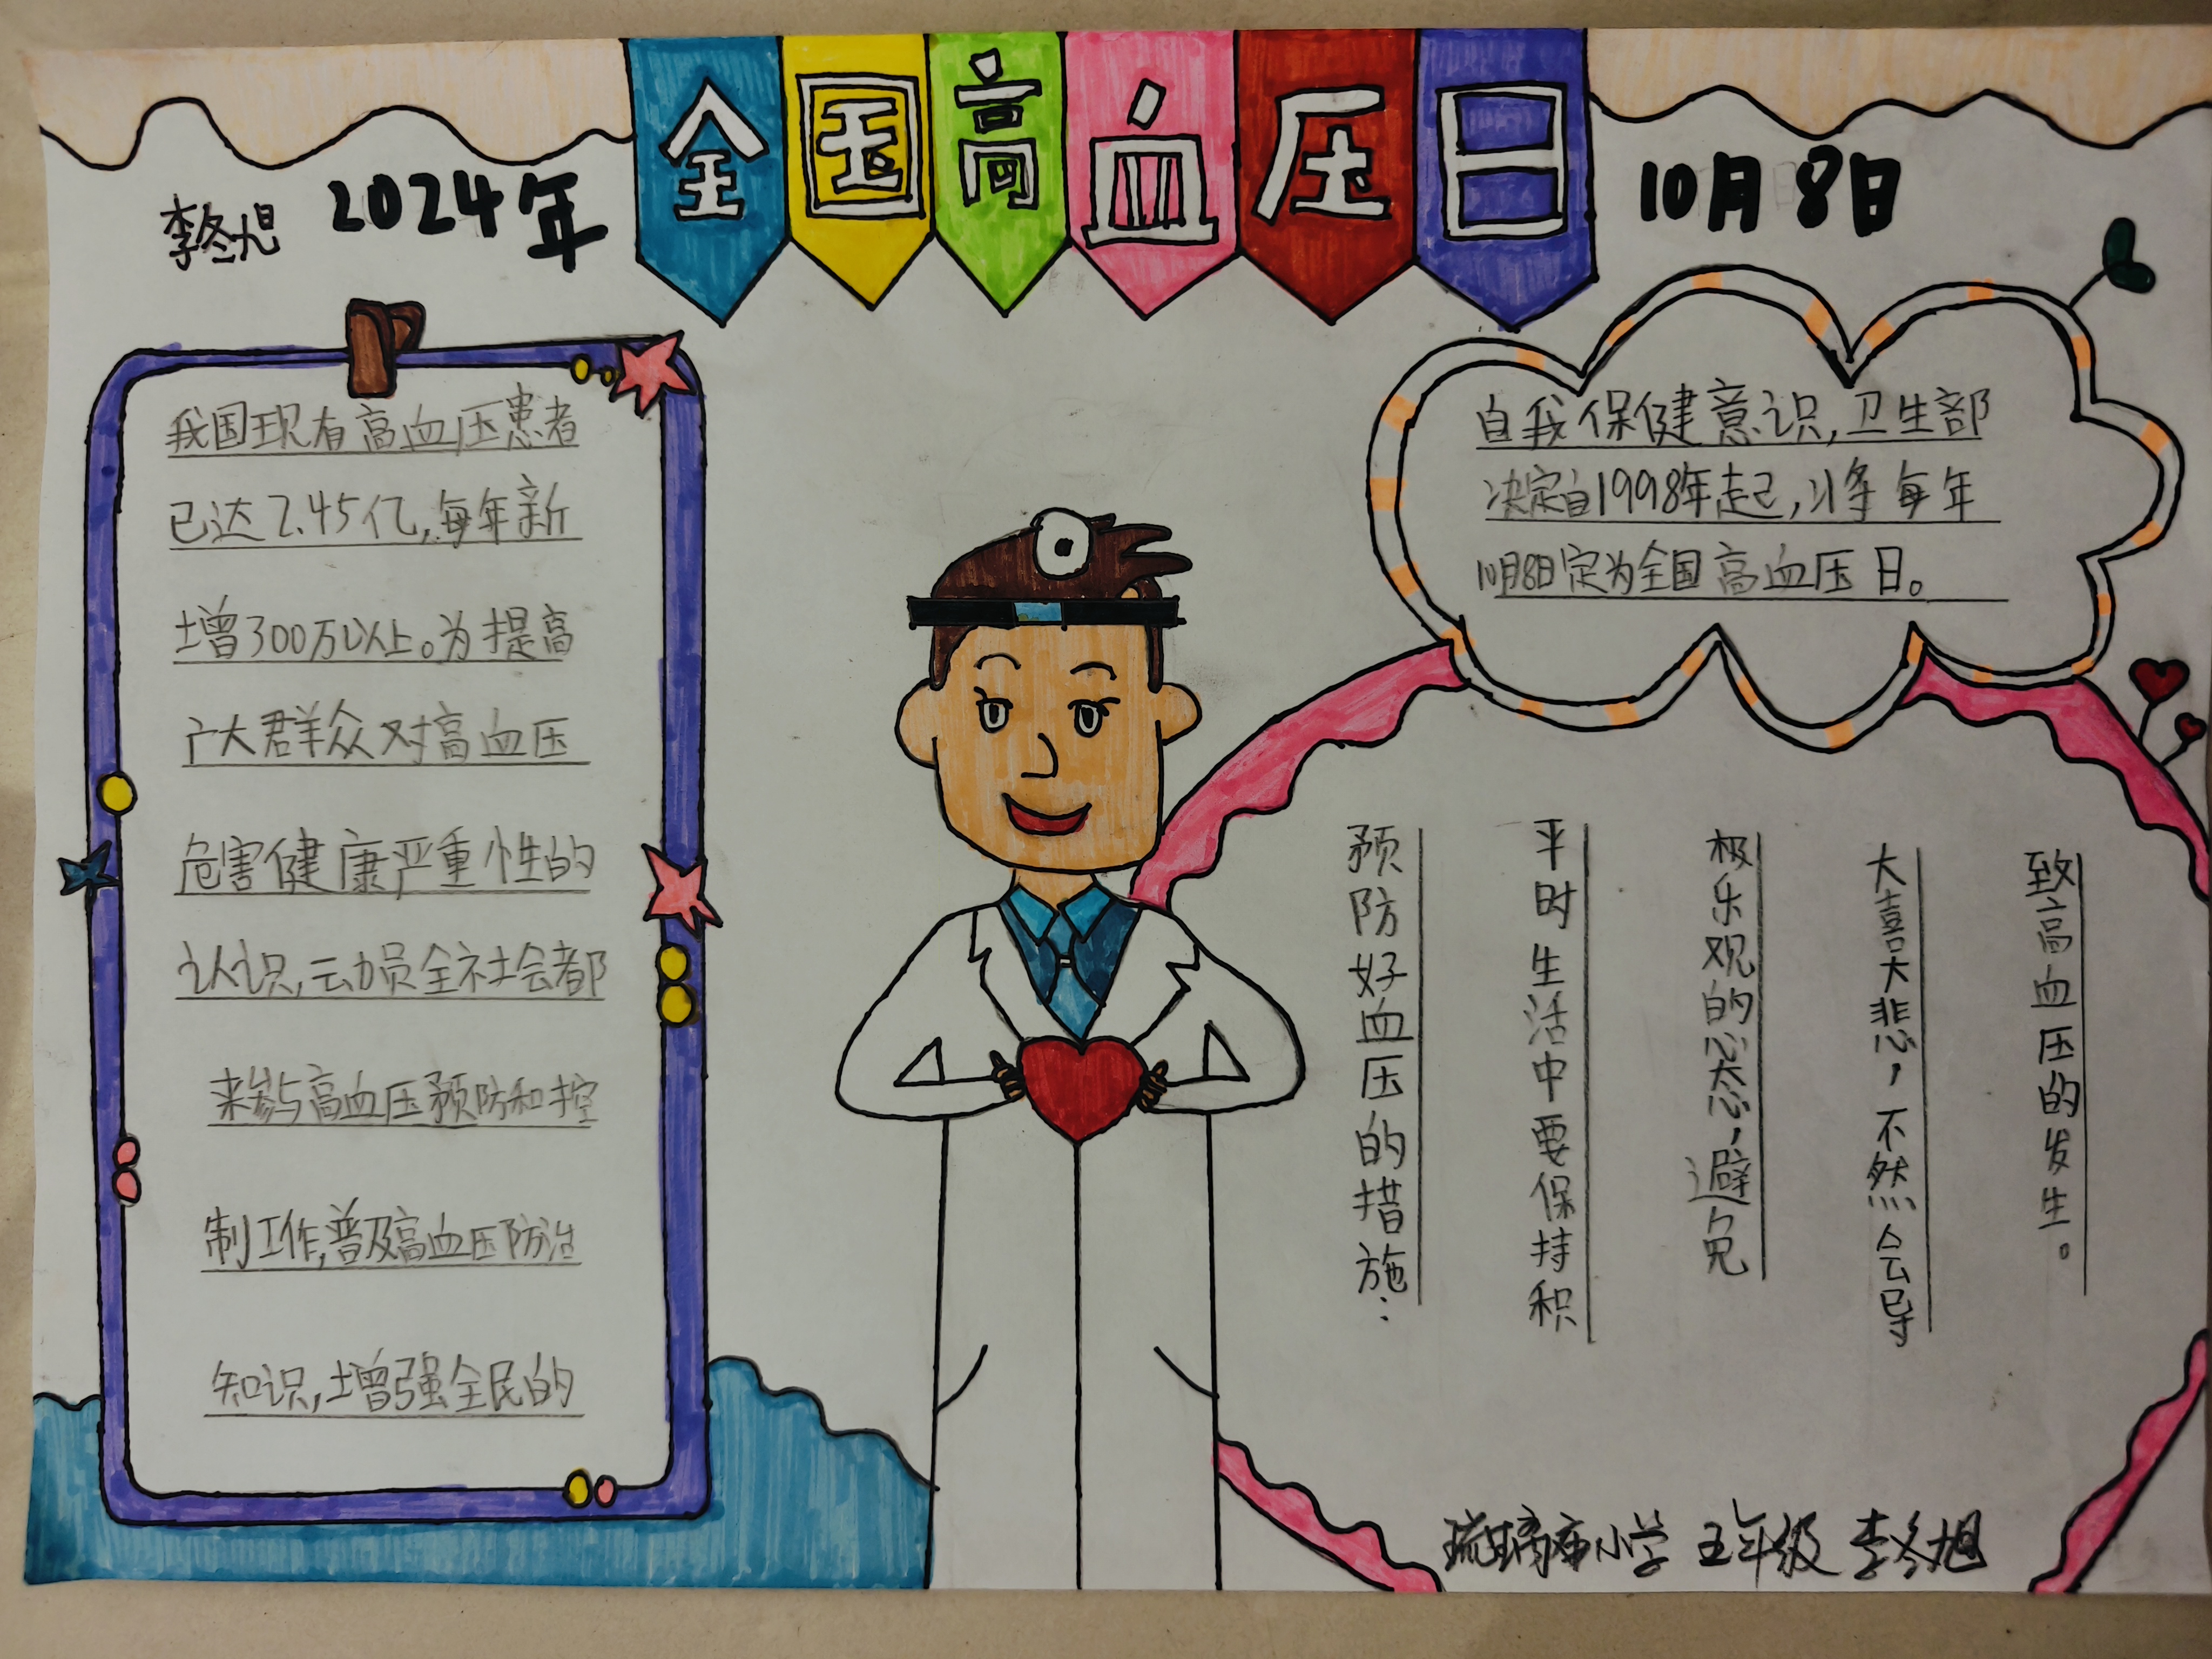 全国高血压日
李冬旭
2024年
10月8日
我国现有高血压患者
已达2.45亿,每年新
增300万以上。为提高
广大群众对高血压
危害健康严重性的
认识,动员全社会都
来参与高血压预防和控
制工作,普及高血压防治
知识,增强全民的
自我保健意识,卫生部
决定自1998年起,将每年
10月8日定为全国高血压日。
预防好血压的措施:
平时生活中要保持积
极乐观的心态,避免
大喜大悲,不然会导
致高血压的发生。
琉璃庙小学 五年级 李冬旭